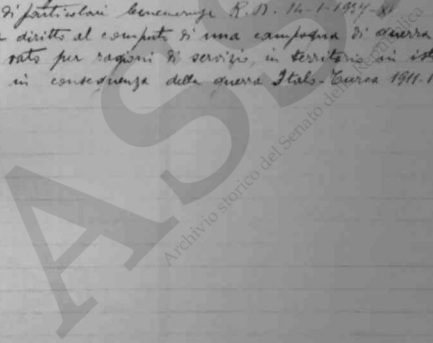 di particolari benemerenze R. D. 14-1-1937-XI
diritto al computo di una campagna di guerra
rato per ragioni di servizio, in territorio in
in conseguenza della guerra Italo-Turca 1911-1
ASS
Archivio storico del Senato della Repubblica